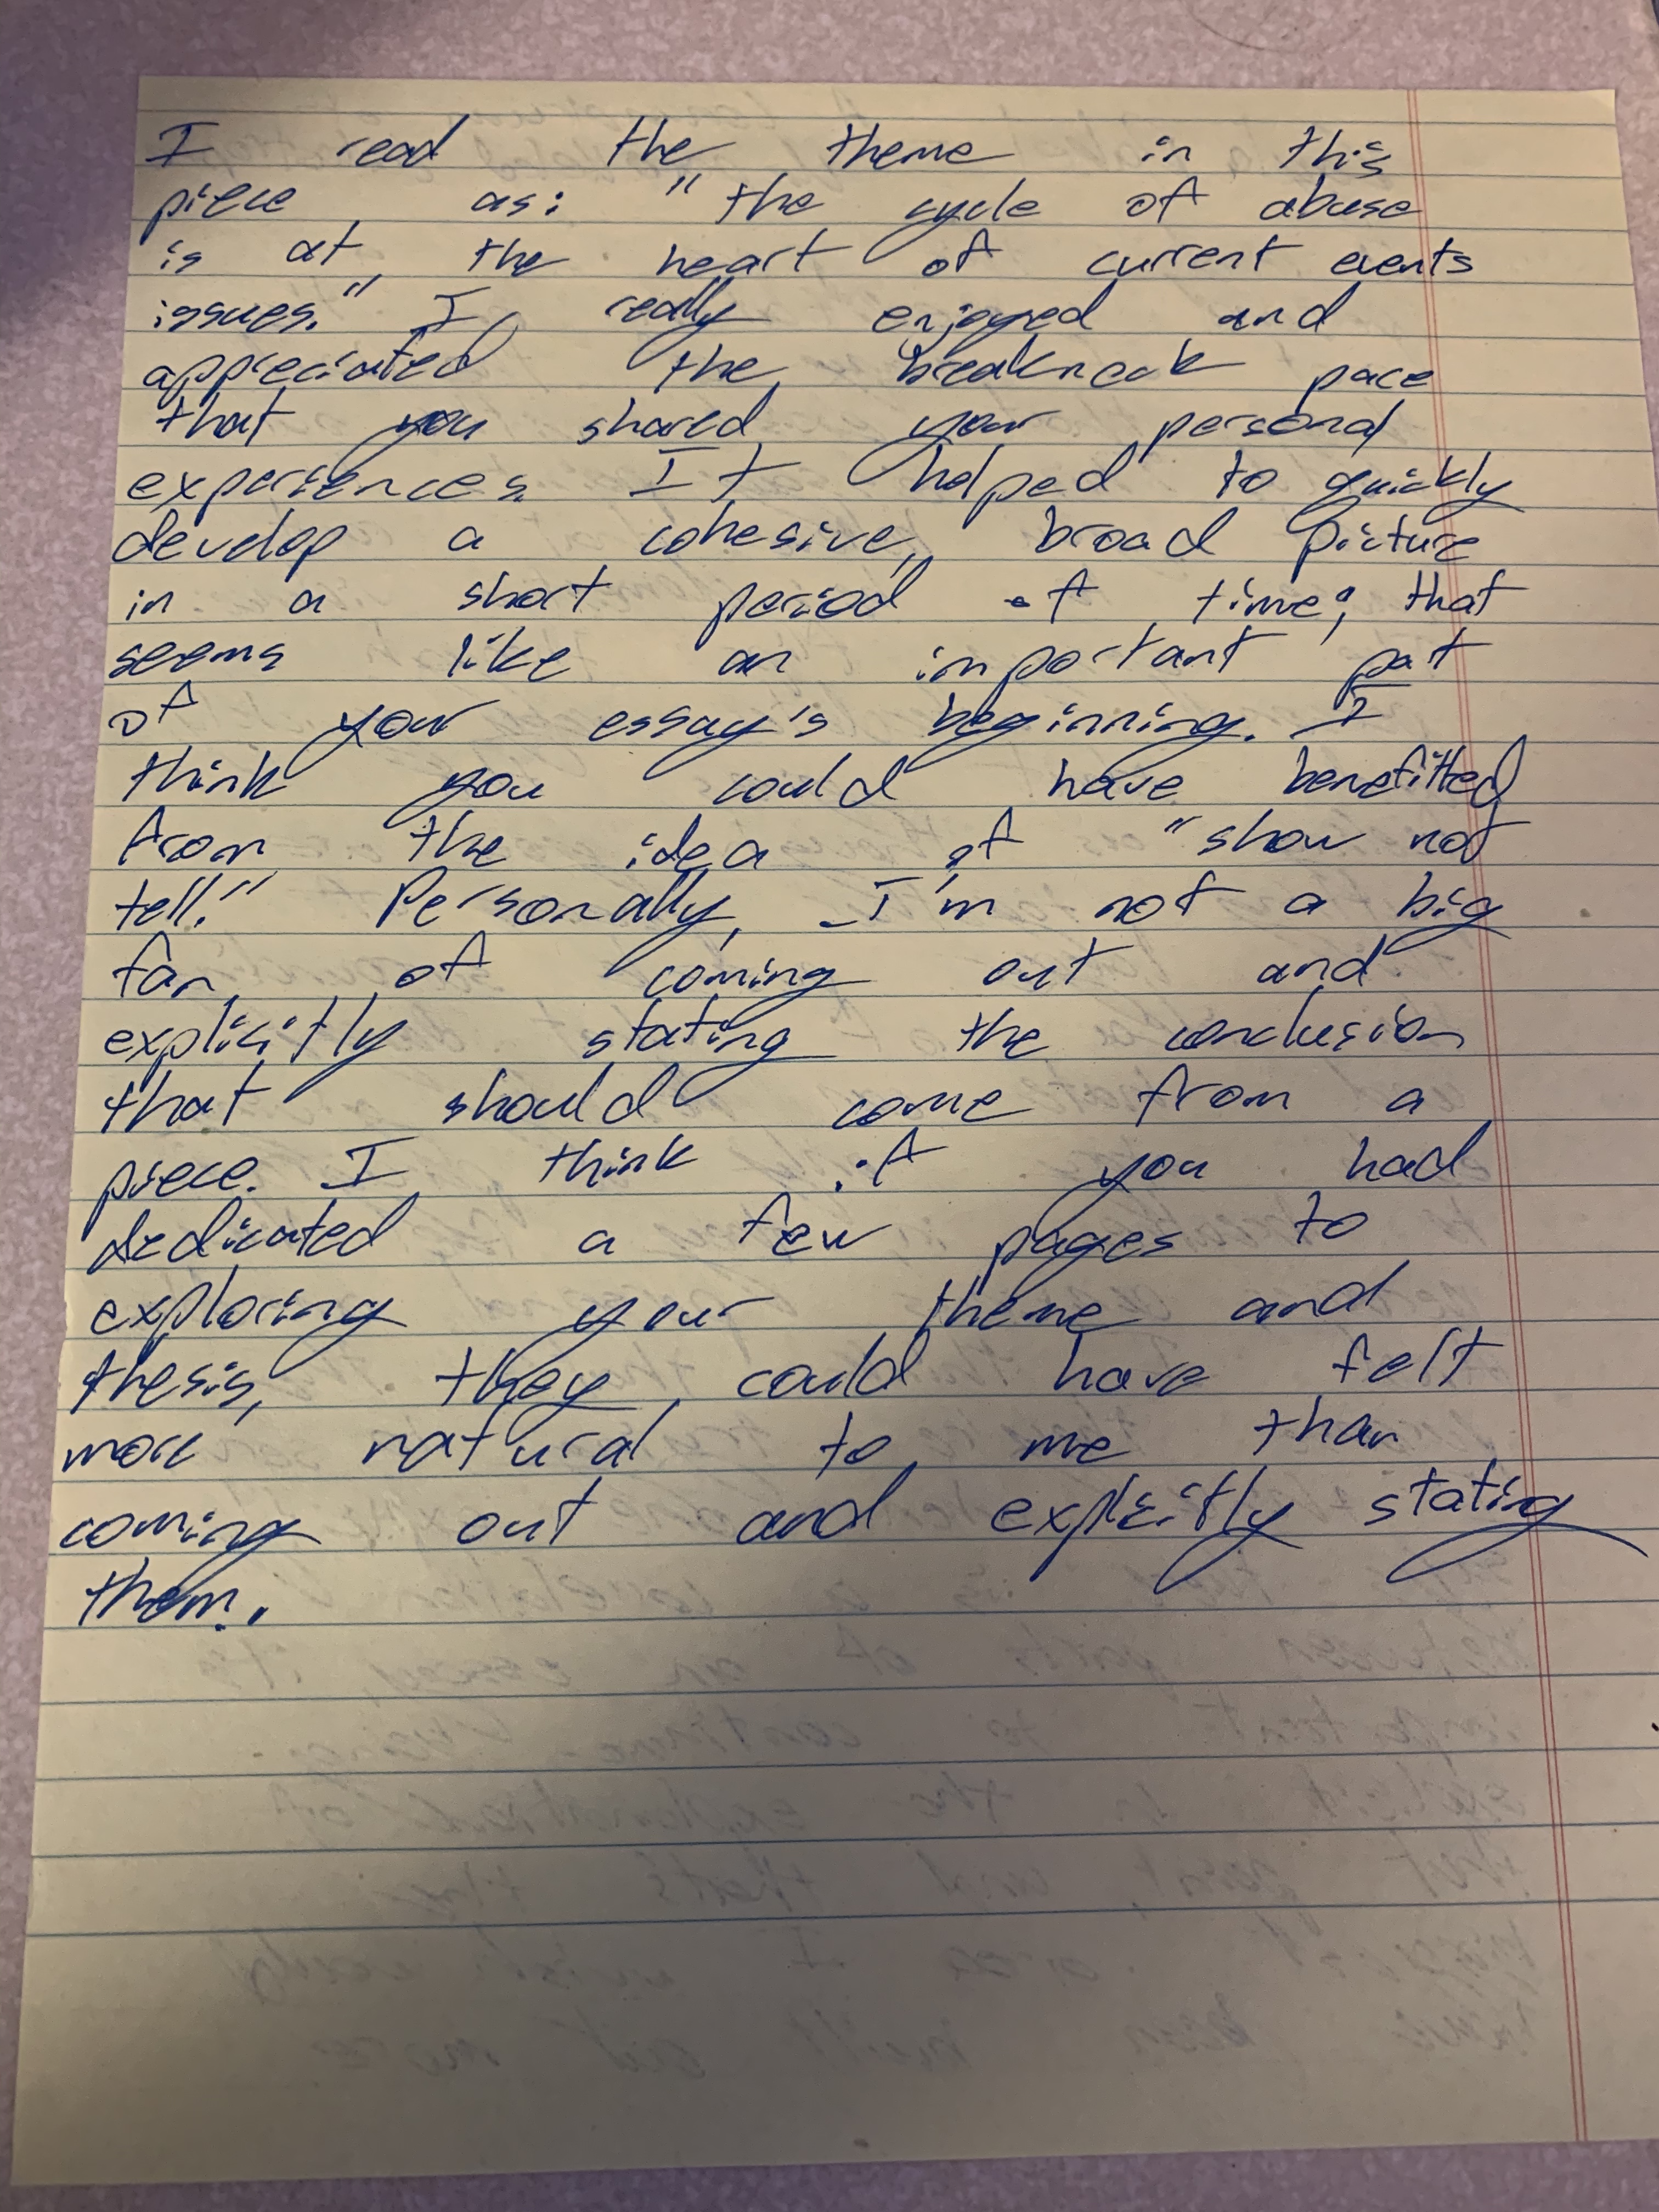 I read the theme in this
piece as: "the cycle of abuse
is at the heart of current events
issues." I really enjoyed and
appreciated the breakneck pace
that you shared your personal
experiences. It helped to quickly
develop a cohesive, broad picture
in a short period of time; that
seems like an important part
of your essay's beginning. I
think you could have benefitted
from the idea of "show not
tell." Personally, I'm not a big
fan of coming out and
explicitly stating the conclusion
that should come from a
piece. I think if you had
dedicated a few pages to
exploring your theme and
thesis, they could have felt
more natural to me than
coming out and explicitly stating
them.